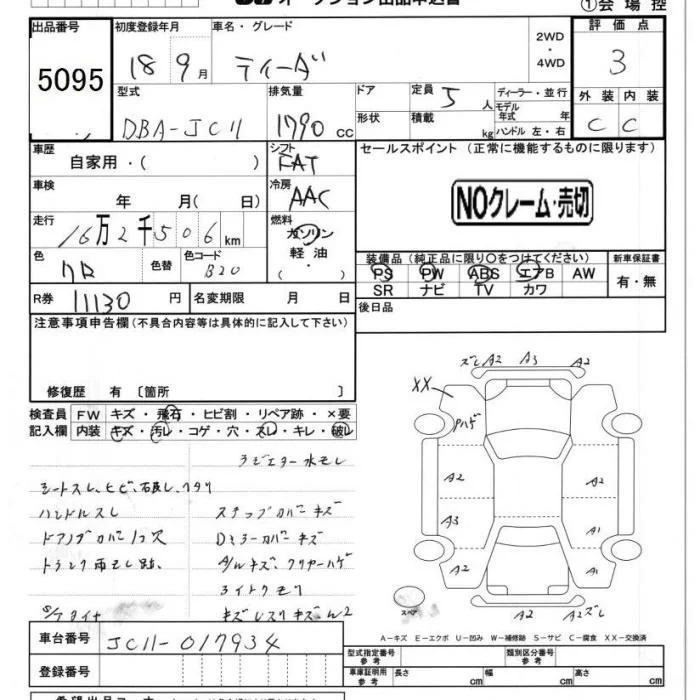 オークション出品申込書
①会場控
出品番号 初度登録年月 車名・グレード 2WD・4WD 評価点
5095 18 9月 ティーダ 3
型式 排気量 ドア 定員 5人 ディーラー・並行 外装 内装
DBA-JC11 1790 cc 形状 積載 kg モデル年式 年式 ハンドル 左・右 C C
車歴 自家用・( ) シフト FAT セールスポイント (正常に機能するものに限ります)
車検 年 月( 日) 冷房 AAC
NOクレーム・売切
走行 16万2千506km 燃料 ガソリン 軽油 ・( )
色 色替 カラーコード B20
装備品 (純正品に限り〇をつけてください) 新車保証書
PS PW ABS エアB AW 有・無
SR ナビ TV カワ
R券 11130 円 名変期限 月 日 後日品
注意事項申告欄 (不具合内容等は具体的に記入して下さい)
修復歴 有 〔箇所 〕
検査員 FW キズ・飛石・ヒビ割・リペア跡・×要
記入欄 内装 キズ・汚レ・コゲ・穴・スレ・キレ・破レ
ラジエター水モレ
シートスレ、ヒビ、
ハンドルスレ ステップカバーキズ
ドアノブカバー1ヶ欠 Dミラーカバーキズ
トランク雨モレ跡、 A/Wキズ、クリヤーハゲ
ライトクモリ
S/Tタイヤ
ズレA2 A3 A2
XX
Pハゲ
A2 A2
A3 A1
A2 A1
スペア
A2 A2ズレ
A-キズ E-エクボ U-凹み W-補修跡 S-サビ C-腐食 XX-交換済
車台番号 JC11-017934
登録番号
型式指定番号 参考 類別区分番号 参考
車庫証明用 参考 長さ cm 幅 cm 高さ cm